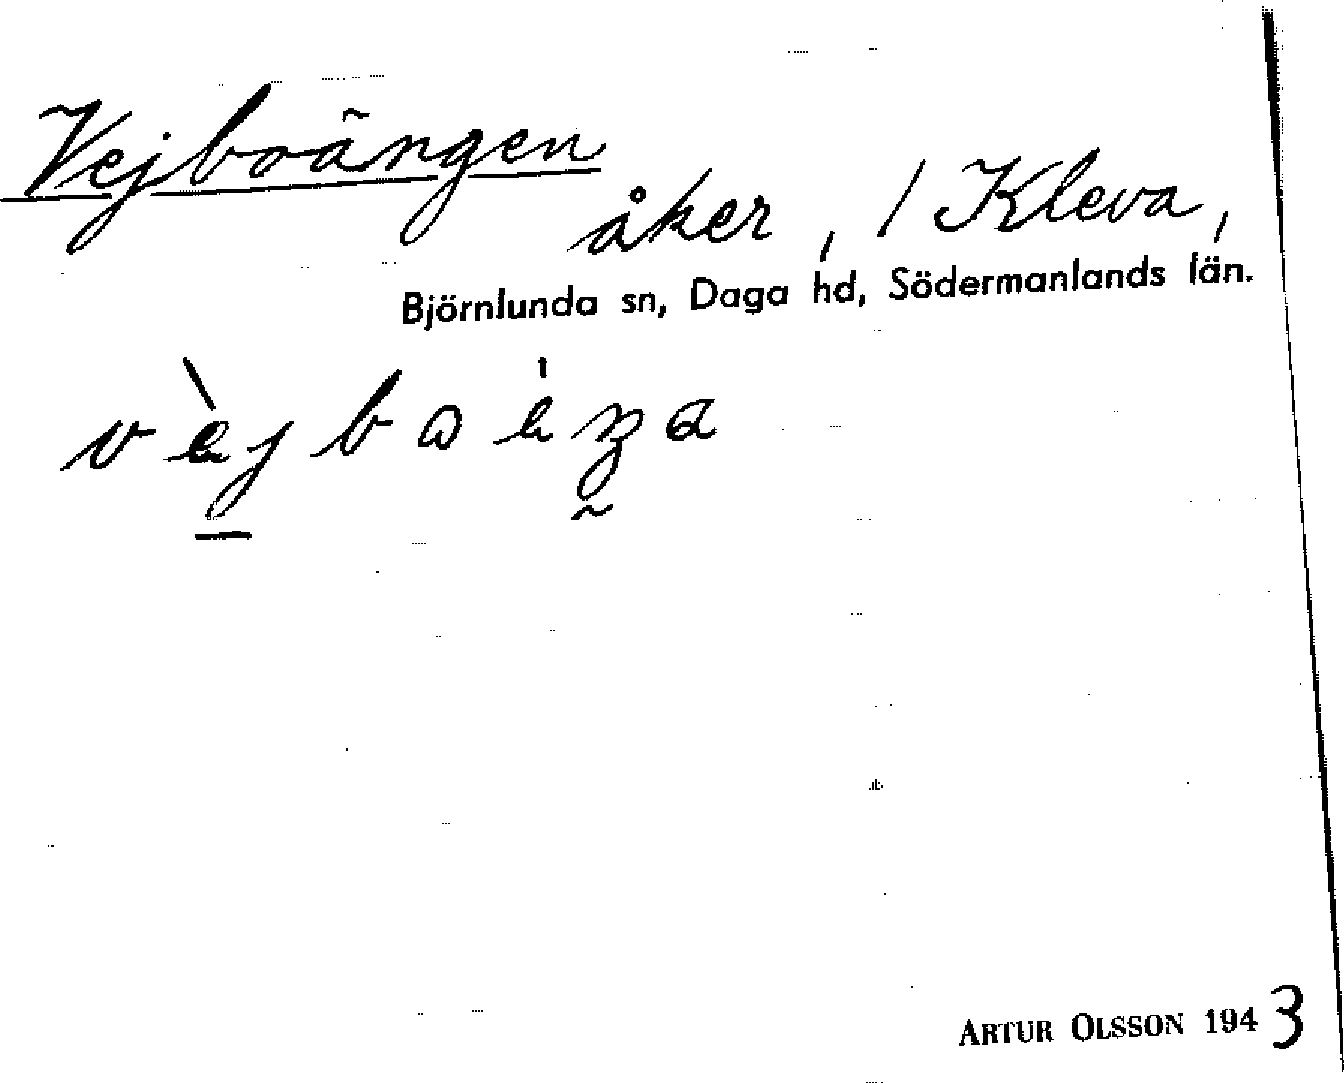 Vejboängen
åker, / Kleva,
Björnlunda sn, Daga hd, Södermanlands län.
ARTUR OLSSON 1943